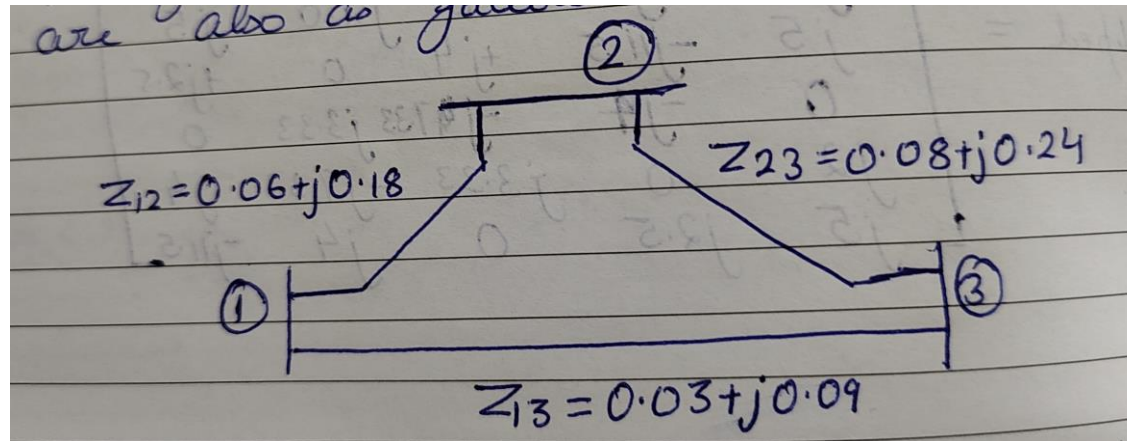 are also as
②
Z12 = 0.06+j0.18
Z23 = 0.08+j0.24
①
③
Z13 = 0.03+j0.09